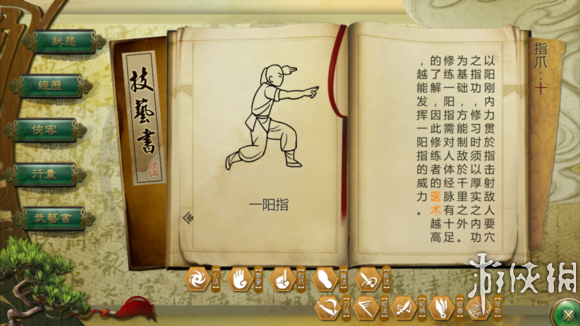 狀態
經歷
俠客
行囊
技藝書
技藝書
一阳指
指爪：十
以阳刚内力贯於指击射敌人要穴
之指功，修习时须以厚实之内功
为基础，方能制敌於千里之外。
修练一阳指需对人体经脉有十足
的了解，因此修练者的医术越高
，越能发挥一阳指的威力。
游侠网